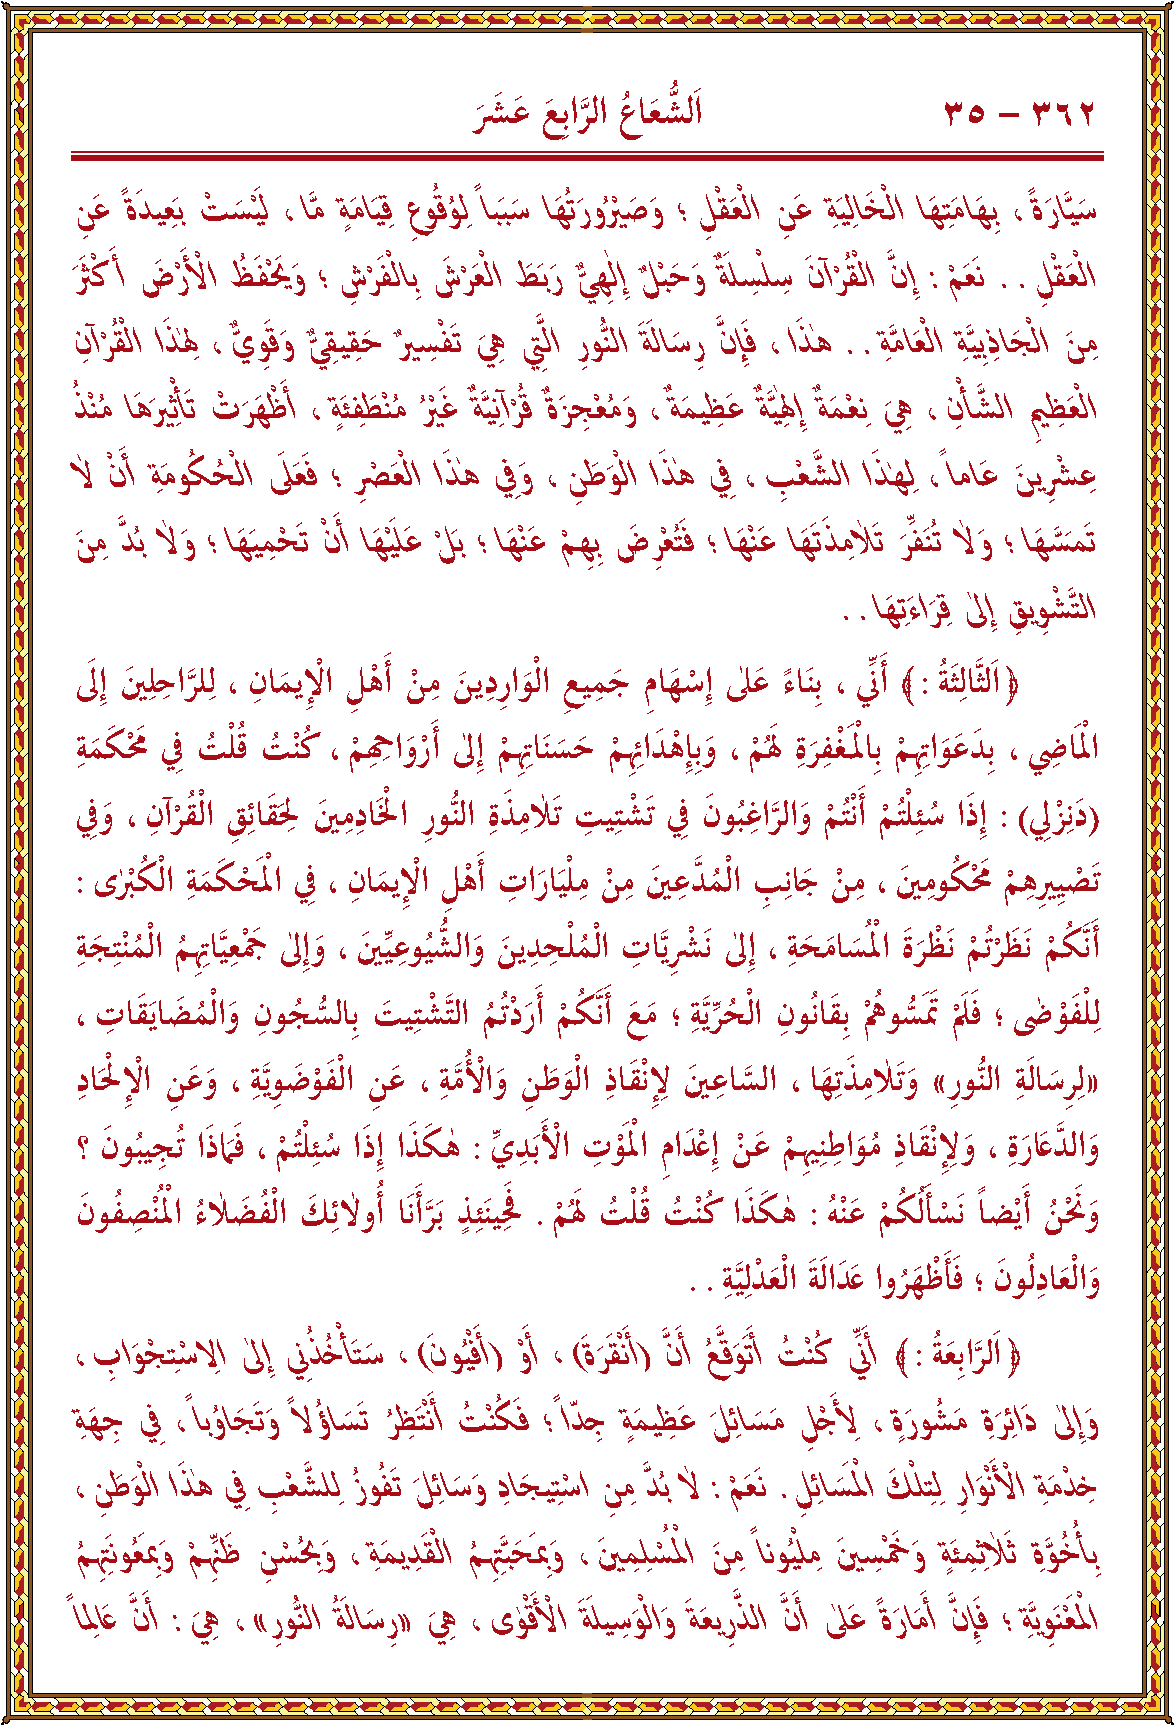 ٣٦٢ – ٣٥ اَلشُّعَاعُ الرَّابِعَ عَشَرَ
سَيَّارَةً ، بِهَامَتِهَا الْخَالِيَةِ عَنِ الْعَقْلِ ؛ وَصَيْرُورَتُهَا سَبَباً لِوُقُوعِ قِيَامَةٍ مَّا ، لَيْسَتْ بَعِيدَةً عَنِ
الْعَقْلِ . . نَعَمْ : إِنَّ الْقُرْآنَ سِلْسِلَةٌ وَحَبْلٌ إِلٰهِيٌّ رَبَطَ الْعَرْشَ بِالْفَرْشِ ؛ وَيَحْفَظُ الْأَرْضَ أَكْثَرَ
مِنَ الْجَاذِبِيَّةِ الْعَامَّةِ . . هٰذَا ، فَإِنَّ رِسَالَةَ النُّورِ الَّتِي هِيَ تَفْسِيرٌ حَقِيقِيٌّ وَقَوِيٌّ ، لِهٰذَا الْقُرْآنِ
الْعَظِيمِ الشَّأْنِ ، هِيَ نِعْمَةٌ إِلٰهِيَّةٌ عَظِيمَةٌ ، وَمُعْجِزَةٌ قُرْآنِيَّةٌ غَيْرُ مُنْطَفِئَةٍ ، أَظْهَرَتْ تَأْثِيرَهَا مُنْذُ
عِشْرِينَ عَاماً ، لِهٰذَا الشَّعْبِ ، فِي هٰذَا الْوَطَنِ ، وَفِي هٰذَا الْعَصْرِ ؛ فَعَلَى الْحُكُومَةِ أَنْ لاٰ
تَمَسَّهَا ؛ وَلاٰ تُنَفِّرَ تَلاٰمِذَتَهَا عَنْهَا ؛ فَتُعْرِضَ بِهِمْ عَنْهَا ؛ بَلْ عَلَيْهَا أَنْ تَحْمِيَهَا ؛ وَلاٰ بُدَّ مِنَ
التَّشْوِيقِ إِلىٰ قِرَاءَتِهَا . .
﴿ اَلثَّالِثَةُ : ﴾ أَنِّي ، بِنَاءً عَلىٰ إِسْهَامِ جَمِيعِ الْوَارِدِينَ مِنْ أَهْلِ الْإِيمَانِ ، لِلرَّاحِلِينَ إِلَى
الْمَاضِي ، بِدَعَوَاتِهِمْ بِالْمَغْفِرَةِ لَهُمْ ، وَبِإِهْدَائِهِمْ حَسَنَاتِهِمْ إِلىٰ أَرْوَاحِهِمْ ، كُنْتُ قُلْتُ فِي مَحْكَمَةِ
(دَنِزْلِي) : إِذَا سُئِلْتُمْ أَنْتُمْ وَالرَّاغِبُونَ فِي تَشْتِيتِ تَلاٰمِذَةِ النُّورِ الْخَادِمِينَ لِحَقَائِقِ الْقُرْآنِ ، وَفِي
تَصْيِيرِهِمْ مَحْكُومِينَ ، مِنْ جَانِبِ الْمُدَّعِينَ مِنْ مِلْيَارَاتِ أَهْلِ الْإِيمَانِ ، فِي الْمَحْكَمَةِ الْكُبْرٰى :
أَنَّكُمْ نَظَرْتُمْ نَظْرَةَ الْمُسَامَحَةِ ، إِلىٰ نَشْرِيَّاتِ الْمُلْحِدِينَ وَالشُّيُوعِيِّينَ ، وَإِلىٰ جَمْعِيَّاتِهِمُ الْمُنْتِجَةِ
لِلْفَوْضٰى ؛ فَلَمْ تَمَسُّوهُمْ بِقَانُونِ الْحُرِّيَّةِ ؛ مَعَ أَنَّكُمْ أَرَدْتُمُ التَّشْتِيتَ بِالسُّجُونِ وَالْمُضَايَقَاتِ ،
«لِرِسَالَةِ النُّورِ» وَتَلاٰمِذَتِهَا ، السَّاعِينَ لِإِنْقَاذِ الْوَطَنِ وَالْأُمَّةِ ، عَنِ الْفَوْضَوِيَّةِ ، وَعَنِ الْإِلْحَادِ
وَالدَّعَارَةِ ، وَلِإِنْقَاذِ مُوَاطِنِيهِمْ عَنْ إِعْدَامِ الْمَوْتِ الْأَبَدِيِّ : هٰكَذَا إِذَا سُئِلْتُمْ ، فَمَاذَا تُجِيبُونَ ؟
وَنَحْنُ أَيْضاً نَسْأَلُكُمْ عَنْهُ : هٰكَذَا كُنْتُ قُلْتُ لَهُمْ . فَحِينَئِذٍ بَرَّأَنَا أُولاٰئِكَ الْفُضَلاٰءُ الْمُنْصِفُونَ
وَالْعَادِلُونَ ؛ فَأَظْهَرُوا عَدَالَةَ الْعَدْلِيَّةِ . .
﴿ اَلرَّابِعَةُ : ﴾ أَنِّي كُنْتُ أَتَوَقَّعُ أَنَّ (أَنْقَرَةَ) ، أَوْ (أَفْيُونَ) ، سَتَأْخُذُنِي إِلىٰ الِاسْتِجْوَابِ ،
وَإِلىٰ دَائِرَةِ مَشُورَةٍ ، لِأَجْلِ مَسَائِلَ عَظِيمَةٍ جِدّاً ؛ فَكُنْتُ أَنْتَظِرُ تَسَاؤُلاً وَتَجَاوُباً ، فِي جِهَةِ
خِدْمَةِ الْأَنْوَارِ لِتِلْكَ الْمَسَائِلِ . نَعَمْ : لاٰ بُدَّ مِنِ اسْتِيجَادِ وَسَائِلَ تَفُوزُ لِلشَّعْبِ فِي هٰذَا الْوَطَنِ ،
بِأُخُوَّةِ ثَلاٰثِمِئَةٍ وَخَمْسِينَ مِلْيُوناً مِنَ الْمُسْلِمِينَ ، وَبِمَحَبَّتِهِمُ الْقَدِيمَةِ ، وَبِحُسْنِ ظَنِّهِمْ وَبِمَعُونَتِهِمُ
الْمَعْنَوِيَّةِ ؛ فَإِنَّ أَمَارَةً عَلىٰ أَنَّ الذَّرِيعَةَ وَالْوَسِيلَةَ الْأَقْوٰى ، هِيَ «رِسَالَةُ النُّورِ» ، هِيَ : أَنَّ عَالِماً